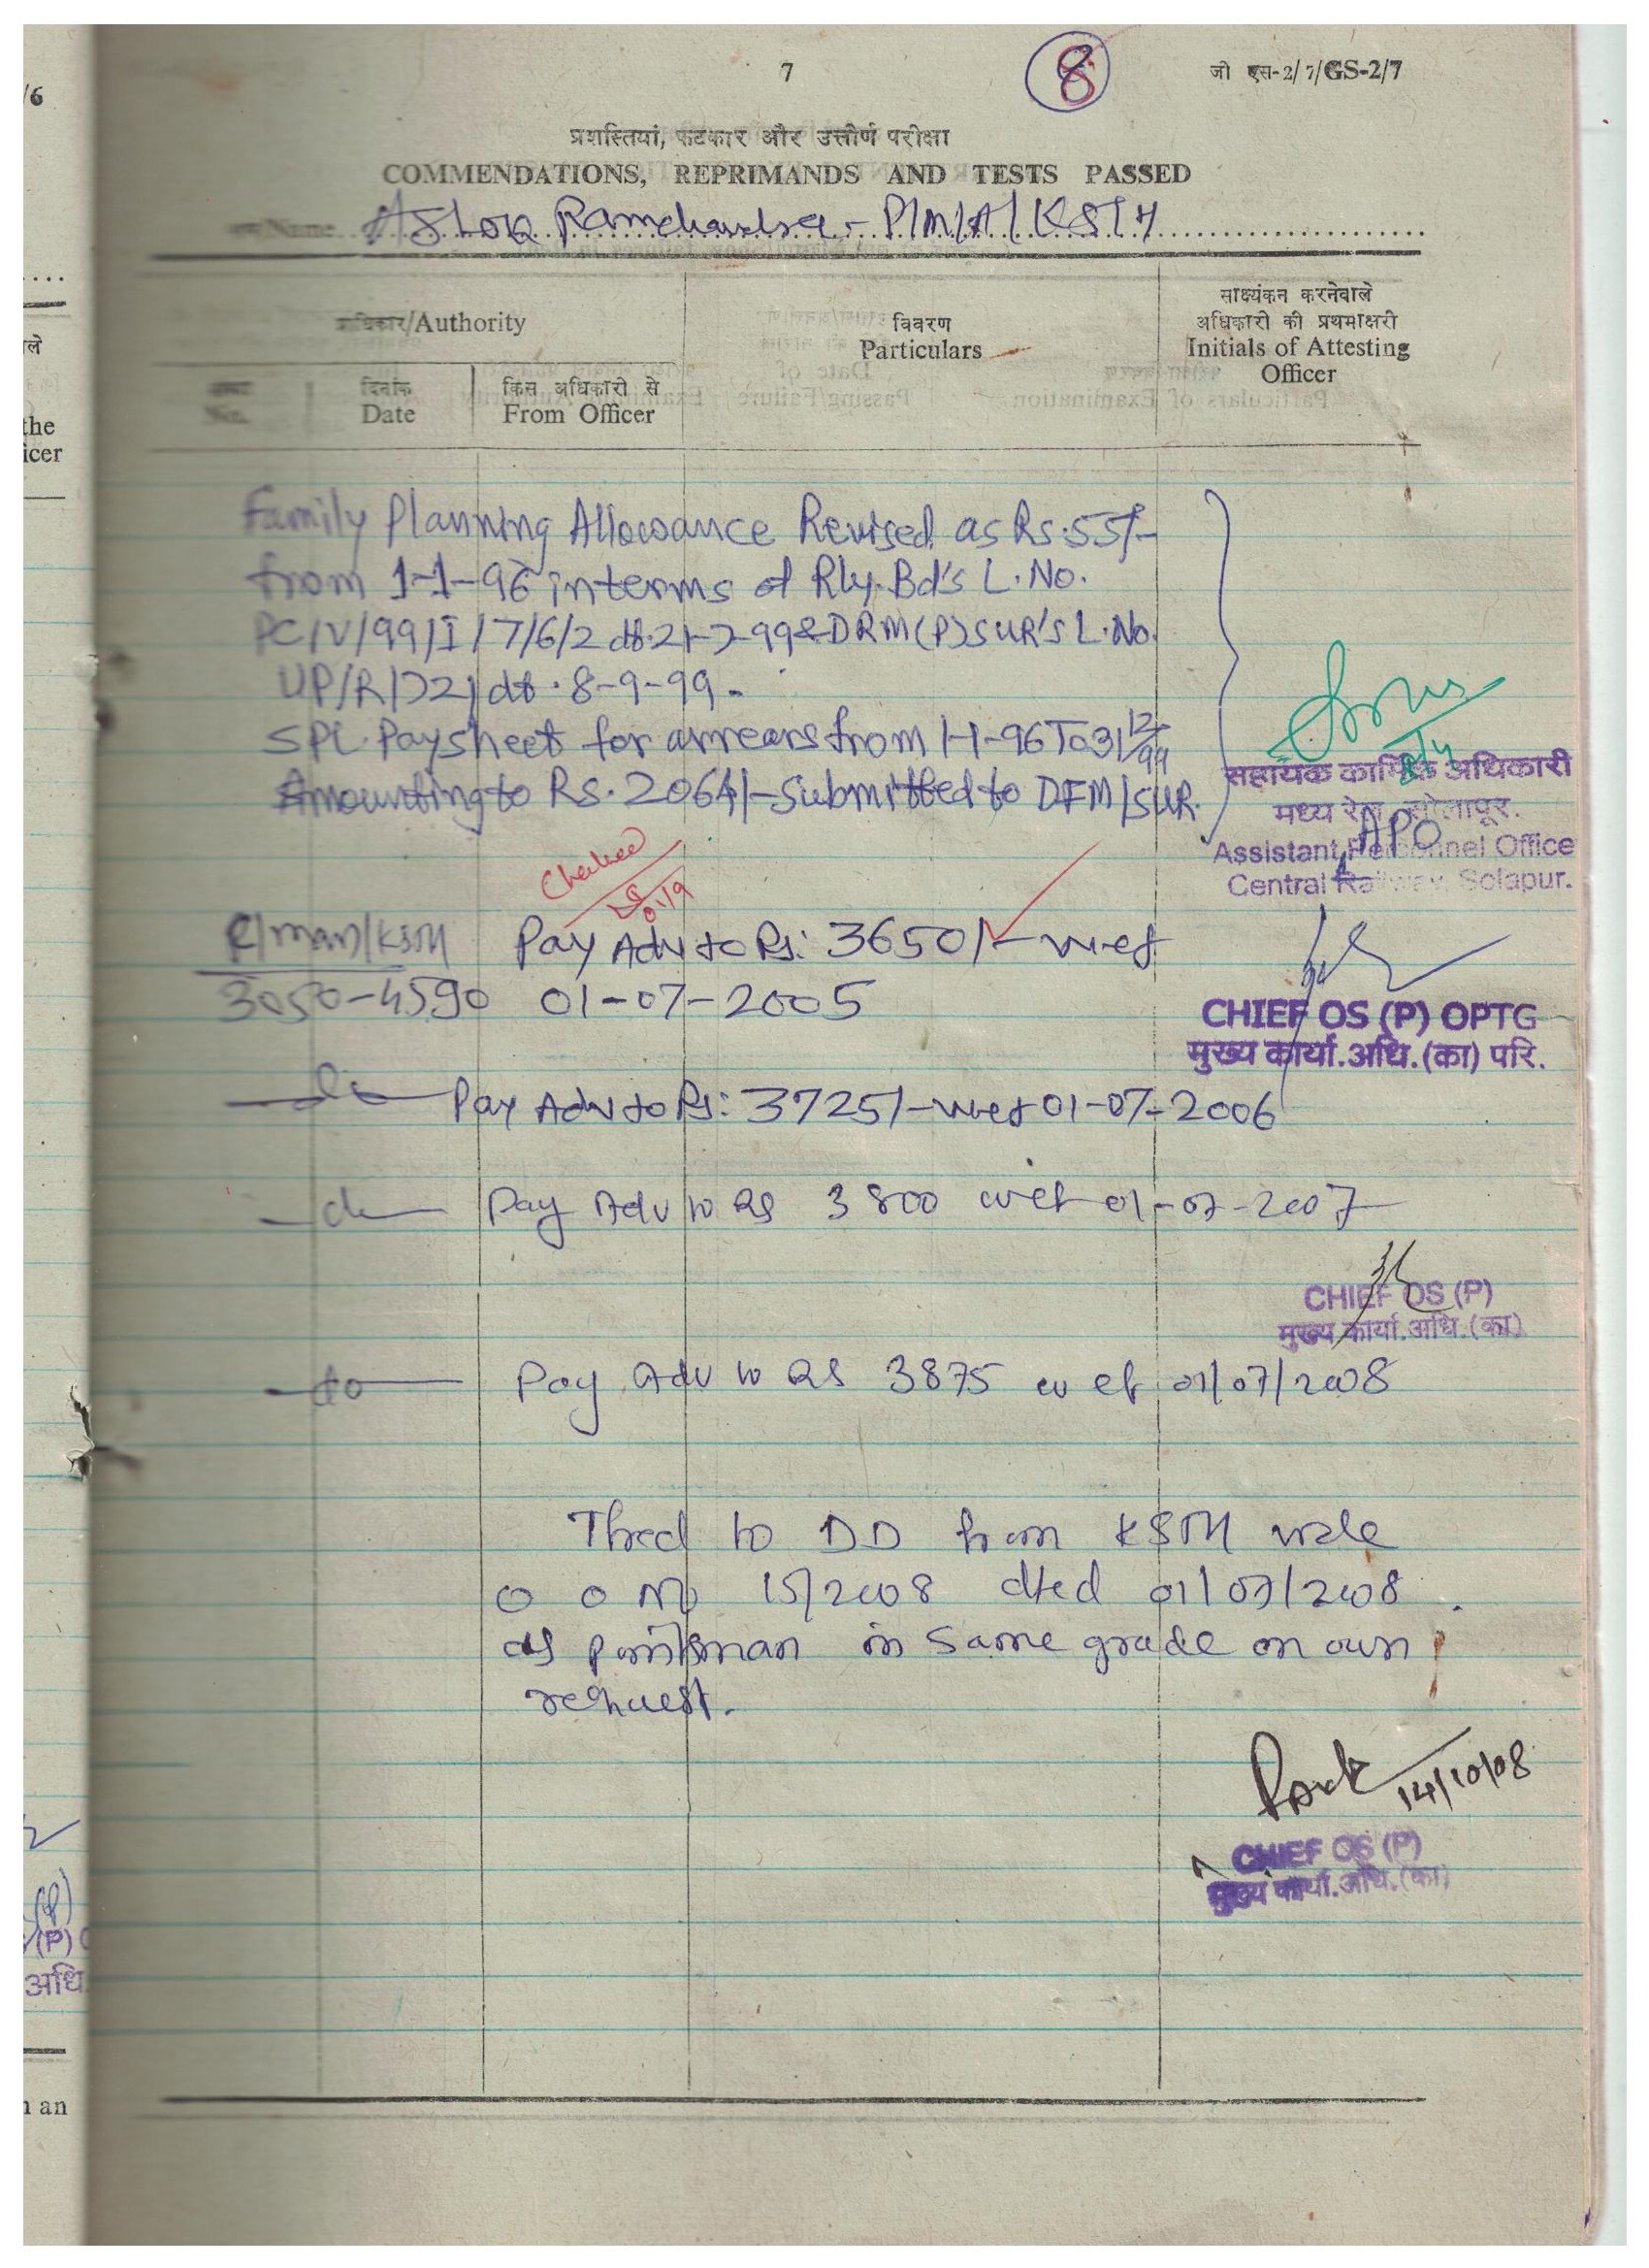 7
8
जी एस-2/7/GS-2/7
प्रशस्तियां, फटकार और उत्तीर्ण परीक्षा
COMMENDATIONS, REPRIMANDS AND TESTS PASSED
नाम/Name Ashok Ramchandra - P/M/A/KSTH
प्राधिकार/Authority
विवरण
Particulars
साक्ष्यंकन करनेवाले
अधिकारी की प्रथमाक्षरी
Initials of Attesting
Officer
No.
दिनांक
Date
किस अधिकारी से
From Officer
Family Planning Allowance Revised as Rs.55/-
from 1-1-96 in terms of Rly. Bd's L. No.
PC/V/99/I/7/6/2 dt. 21-7-99 & DRM(P)SUR'S L. No.
UP/R/721 dt. 8-9-99.
SPL Paysheet for arrears from 1-1-96 To 31/12/99
Amounting to Rs. 2064/- Submitted to DFM/SUR.
सहायक कार्मिक अधिकारी
मध्य रेल, सोलापूर.
APO
Assistant Personnel Office
Central Railway, Solapur.
Checked
01/9
P/man/KSTH Pay Adv to Rs: 3650/- wef
3050-4590 01-07-2005
CHIEF OS (P) OPTG
मुख्य कार्या.अधि.(का) परि.
do Pay Adv to Rs: 3725/- wef 01-07-2006
do Pay Adv to Rs 3800 wef 01-07-2007
CHIEF OS (P)
मुख्य कार्या.अधि.(का)
do Pay Adv to Rs 3875 wef 01/07/2008
Tfred to DD from KSTH vide
O O No 15/2008 dted 01/07/2008.
as pointsman in same grade on own
request.
14/10/08
CHIEF OS (P)
मुख्य कार्या.अधि.(का)
/6
ले
the
icer
(P)
अधि
n an